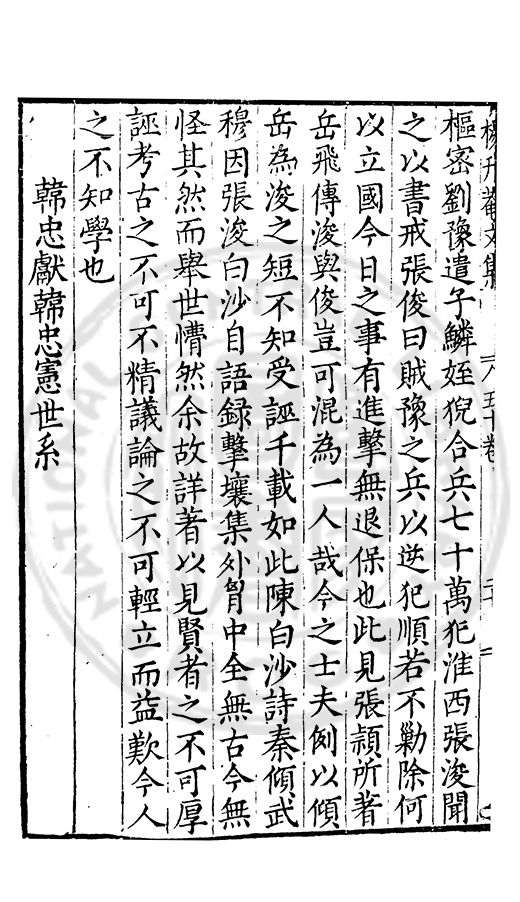 楊升菴文集 五十卷
樞密劉豫遣子鱗姪猊合兵七十萬犯淮西張浚聞
之以書戒張俊曰賊豫之兵以逆犯順若不勦除何
以立國今日之事有進擊無退保也此見張頴所著
岳飛傳浚與俊豈可混為一人哉今之士夫例以傾
岳為浚之短不知受誣千載如此陳白沙詩秦傾武
穆因張浚白沙自語録擊壤集外胷中全無古今無
怪其然而舉世懵然余故詳著以見賢者之不可厚
誣考古之不可不精議論之不可輕立而益歎今人
之不知學也
韓忠獻韓忠憲世系